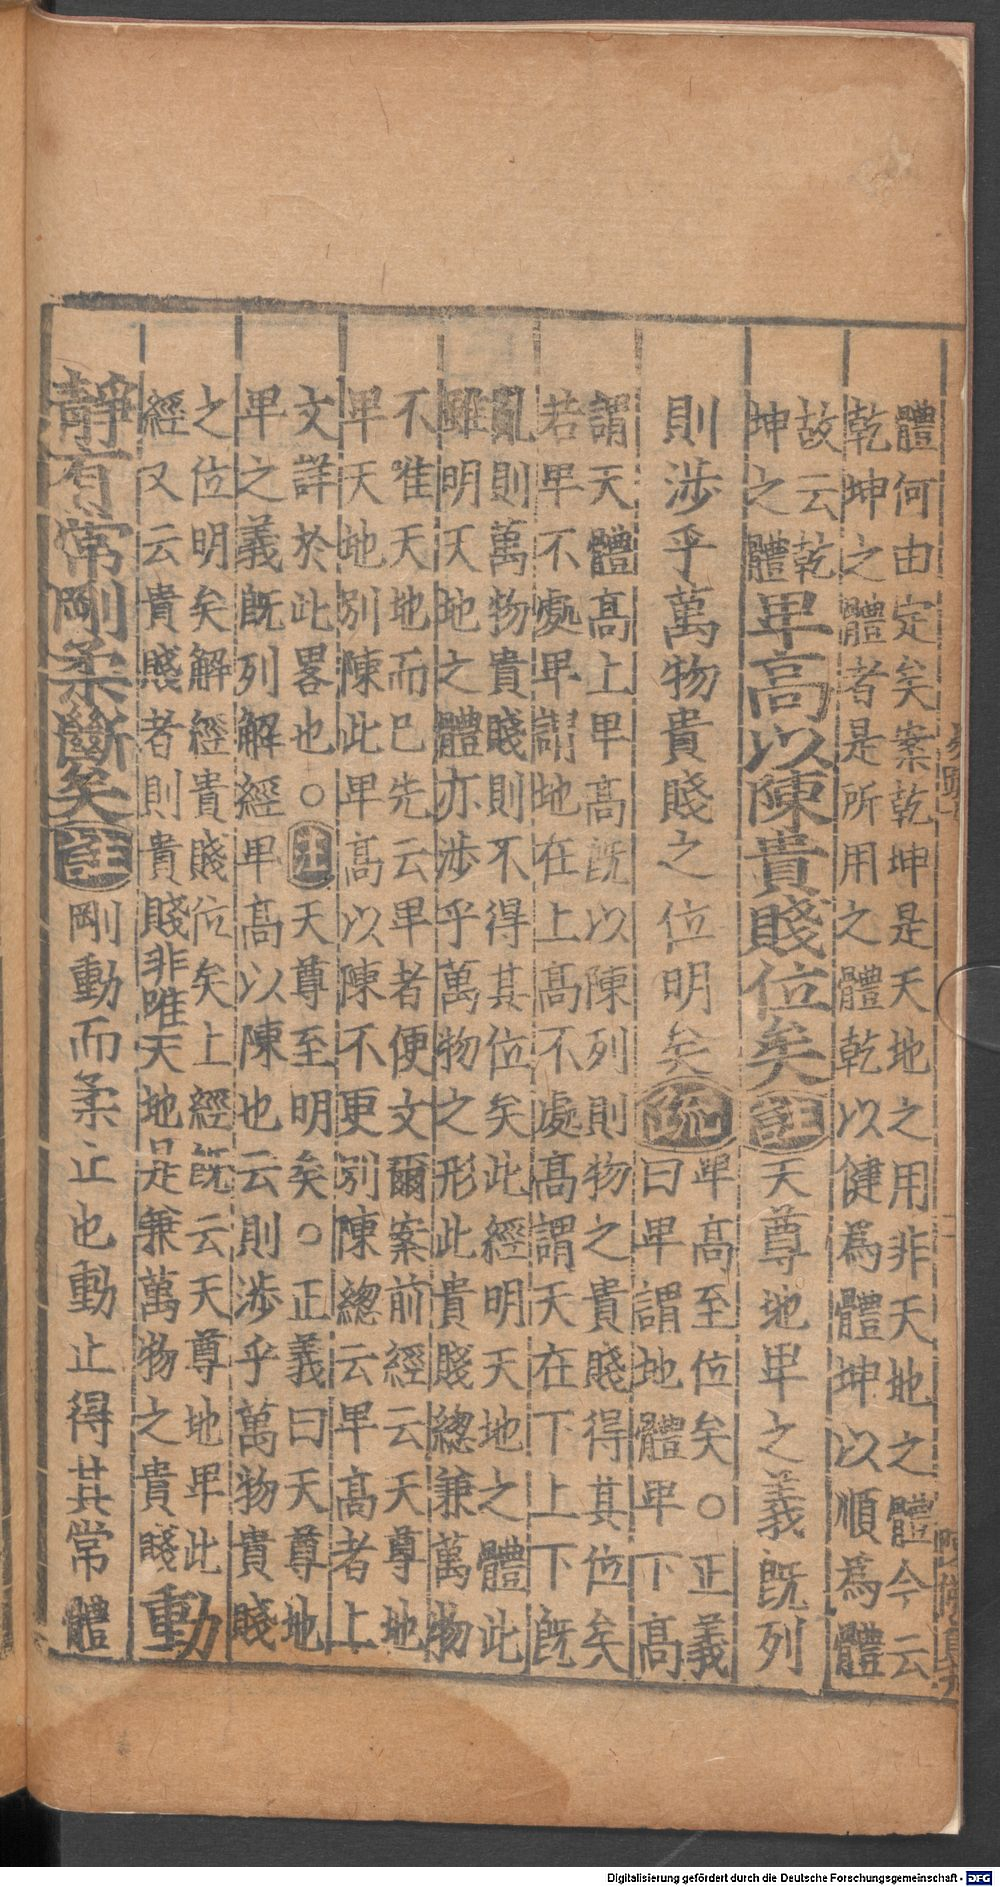 體何由定矣案乾坤是天地之用非天地之體今云
乾坤之體者是所用之體乾以健爲體坤以順爲體
故云乾
坤之體
卑高以陳貴賤位矣
註
天尊地卑之義旣列
則涉乎萬物貴賤之位明矣
疏
卑高至位矣○正義
曰卑謂地體卑下高
謂天體高上卑高旣以陳列則物之貴賤得其位矣
若卑不處卑謂地在上高不處高謂天在下上下旣
亂則萬物貴賤則不得其位矣此經明天地之體此
雖明天地之體亦涉乎萬物之形此貴賤緫兼萬物
不唯天地而已先云卑者便文爾案前經云天尊地
卑天地別陳此卑高以陳不更別陳緫云卑高者上
文詳於此畧也○
註
天尊至明矣○正義曰天尊地
卑之義旣列解經卑高以陳也云則涉乎萬物貴賤
之位明矣解經貴賤位矣上經旣云天尊地卑此
經又云貴賤者則貴賤非唯天地是兼萬物之貴賤
動
靜有常剛柔斷矣
註
剛動而柔止也動止得其常體
二
Digitalisierung gefördert durch die Deutsche Forschungsgemeinschaft - DFG